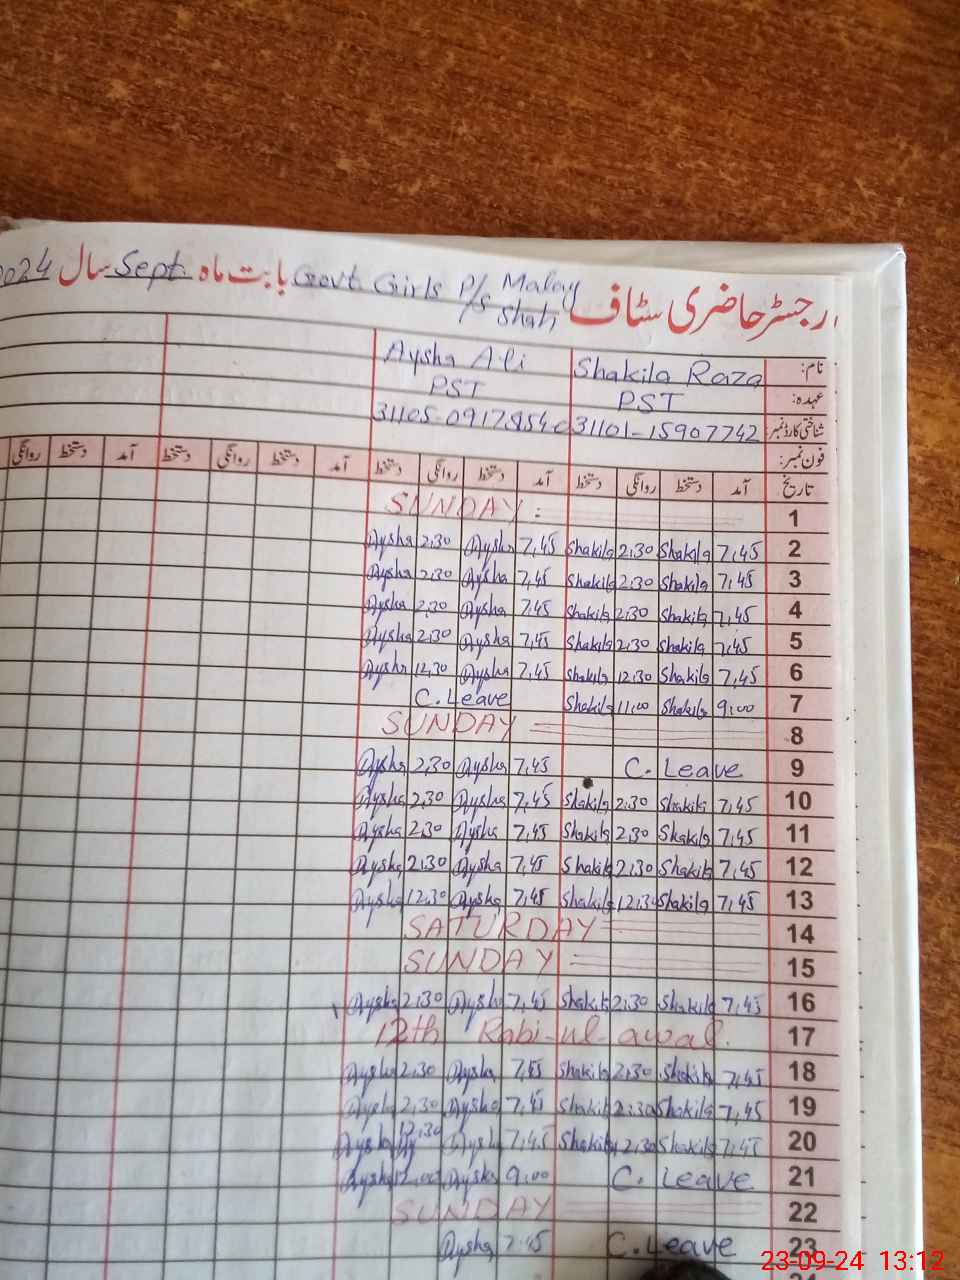 رجسٹر حاضری سٹاف Govt Girls P/s Malay Shah بابت ماہ Sept سال 2024
نام: Shakila Raza Aysha Ali
عہدہ: PST PST
شناختی کارڈ نمبر: 31101-15907742 31105-0917854
فون نمبر:
تاریخ آمد دستخط روانگی دستخط آمد دستخط روانگی دستخط آمد دستخط روانگی دستخط آمد دستخط روانگی
1 SUNDAY
2 7,45 Shakila 2:30 Shakila 7,45 Aysha 2:30 Aysha
3 7,45 Shakila 2:30 Shakila 7,45 Aysha 2:30 Aysha
4 7,45 Shakila 2:30 Shakila 7,45 Aysha 2:30 Aysha
5 7,45 Shakila 2:30 Shakila 7,45 Aysha 2:30 Aysha
6 7,45 Shakila 12:30 Shakila 7,45 Aysha 12,30 Aysha
7 9:00 Shakila 11:00 Shakila C. Leave
8 SUNDAY
9 C. Leave 7,45 Aysha 2,30 Aysha
10 7,45 Shakila 2:30 Shakila 7,45 Aysha 2,30 Aysha
11 7,45 Shakila 2:30 Shakila 7,45 Aysha 2:30 Aysha
12 7,45 Shakila 2:30 Shakila 7,45 Aysha 2:30 Aysha
13 7,45 Shakila 12:30 Shakila 7,45 Aysha 12,30 Aysha
14 SATURDAY
15 SUNDAY
16 7,45 Shakila 2:30 Shakila 7,45 Aysha 2:30 Aysha
17 12th Rabi-ul-awal.
18 7,45 Shakila 2:30 Shakila 7,45 Aysha 2:30 Aysha
19 7,45 Shakila 2:30 Shakila 7,45 Aysha 2,30 Aysha
20 7,45 Shakila 12:30 Shakila 7,45 Aysha 12:30 Aysha
21 C. Leave 9:00 Aysha 12:00 Aysha
22 SUNDAY
23 C. Leave 7:45 Aysha
23-09-24 13:12